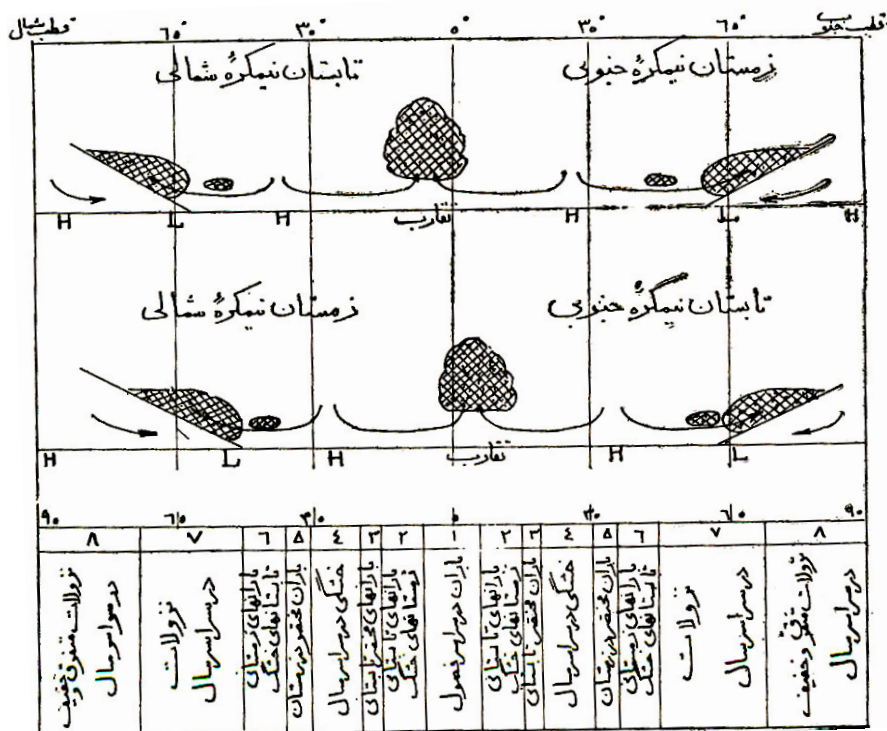 قطب شمال ٦٠° ٣٠° ٠° ٣٠° ٦٠° قطب جنوب
تابستان نیمکرهٔ شمالی
زمستان نیمکرهٔ جنوبی
H L H تقارب H L H
زمستان نیمکرهٔ شمالی
تابستان نیمکرهٔ جنوبی
H L H تقارب H L
٩٠ ٦٠ ٣٠ ٠ ٣٠ ٦٠ ٩٠
٨ ٧ ٦ ٥ ٤ ٣ ٢ ١ ٢ ٣ ٤ ٥ ٦ ٧ ٨
نزولات متفرق و خفیف
در سراسر سال
نزولات
در سراسر سال
بارانهای زمستانی
تابستانهای خشک
باران مختصر در زمستان
خشکی در سراسر سال
بارانهای مختصر تابستانی
بارانهای تابستانی
زمستانهای خشک
باران در سراسر فصول
بارانهای تابستانی
زمستانهای خشک
باران مختصر تابستانی
خشکی در سراسر سال
باران مختصر در زمستان
بارانهای زمستانی
تابستانهای خشک
نزولات
در سراسر سال
نزولات متفرق و خفیف
در سراسر سال